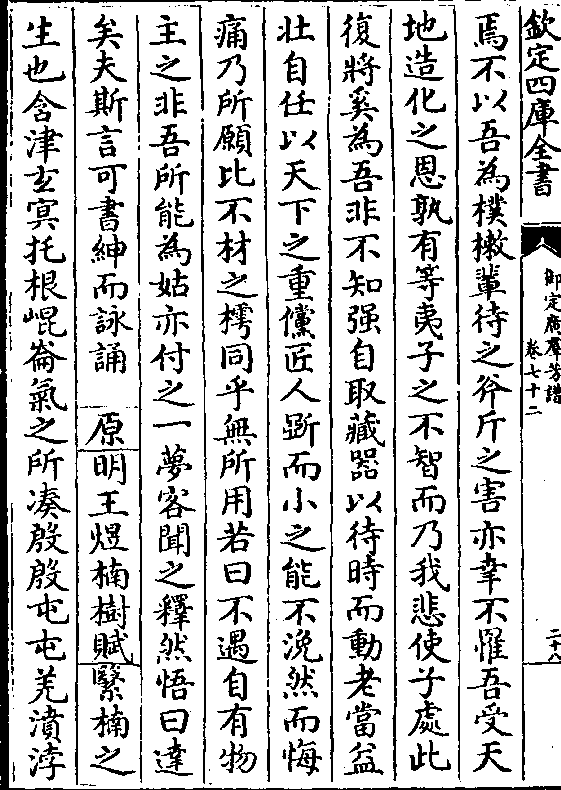 欽定四庫全書
御定廣羣芳譜
卷七十二
二十八
焉不以吾為樸樕輩待之斧斤之害亦幸不罹吾受天
地造化之恩孰有等夷子之不智而乃我悲使子處此
復將奚為吾非不知强自取藏器以待時而動老當益
壯自任以天下之重儻匠人斲而小之能不浼然而悔
痛乃所願比不材之樗同乎無所用若曰不遇自有物
主之非吾所能為姑亦付之一夢客聞之釋然悟曰達
矣夫斯言可書紳而詠誦 原明王煜楠樹賦繄楠之
生也含津玄冥托根崐崙氣之所湊殷殷屯屯羌濆浡